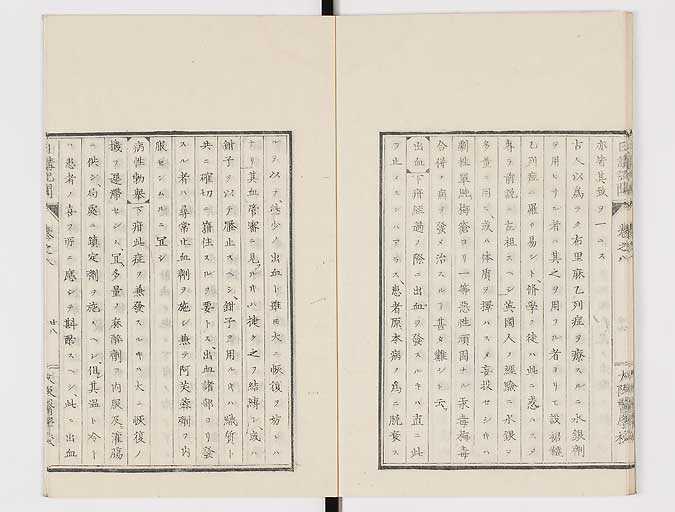 亦皆其致ヲ一ニス
古人以爲ラク布里麻乙列症ヲ療スルニ水銀劑
ヲ用ヒサル者ハ其之ヲ用フル者ヨリモ設
乙列症ニ罹リ易シト儕學ノ徒ハ此ニ惑ハス
專ラ前説ニ左袒スヘシ英國人ノ經驗ニ水銀ヲ
多量ニ用ヒ或ハ体質ヲ擇ハスメ妄投セシキハ
劇性單純梅瘡ヨリ一等惡性頑固ナル汞毒梅毒
合併ノ病ヲ發メ治スルヿ甚タ難シト云
出血 下疳經過ノ際ニ出血ヲ發スルキハ直ニ此
ヲ止メスンハアラス患者原本病ノ爲ニ脱衰ス
ルヲ以テ些少ノ出血ト雖モ大ニ恢復ヲ妨レハ
ナリ其血管審ニ見ルキハ捷ク之ヲ結縛シ或ハ
鉗子ヲ以テ壓止スヘシ鉗子ヲ用ルキハ織質ト
共ニ確切ニ箝住スルヲ要トス出血諸部ヨリ發
スル者ハ尋常止血劑ヲ施シ兼テ阿芙蓉劑ヲ内
服セシムルニ冝シ
病性勃擧 下疳此症ヲ兼發スルキハ大ニ恢復ノ
機ヲ遲滯セシム冝ク多量ノ麻醉劑ヲ内服及灌腸
ニ供シ局處ニ鎮定劑ヲ施スヘシ但其温ト冷ト
ハ患者ノ喜フ所ニ應シテ斟酌スヘシ此ニ出血
日講記聞 卷之八
廿八
大阪醫學校